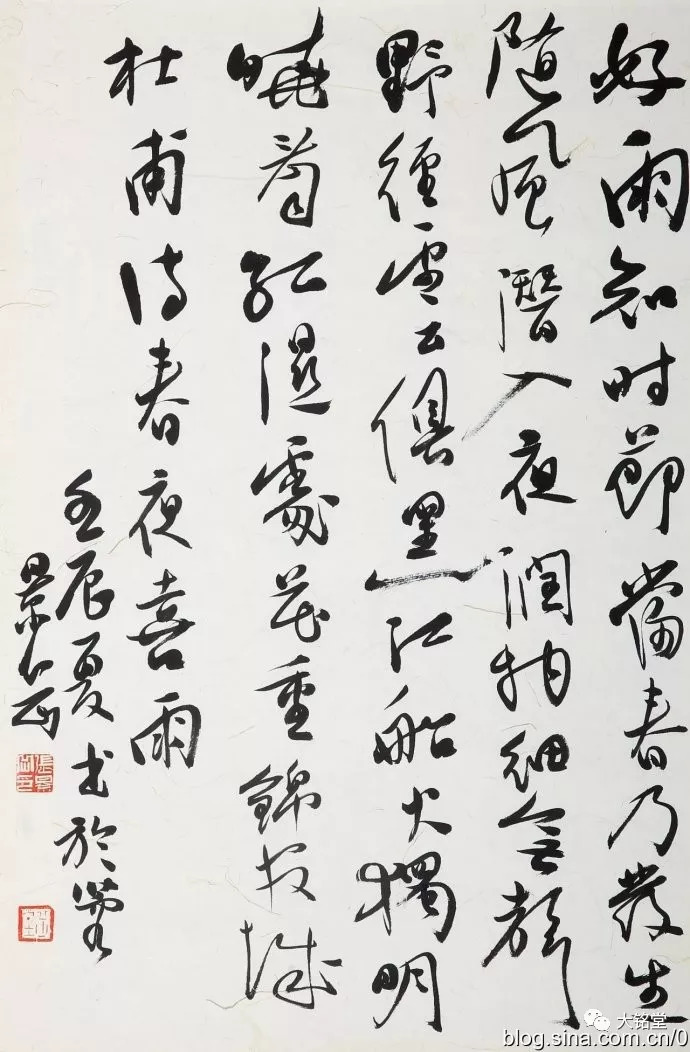 好雨知时節當春乃發生
隨風潛入夜潤物細無聲
野徑雲俱黑江船火獨明
曉看紅濕處花重錦官城
杜甫诗春夜喜雨
壬辰夏书於
景
大铭堂
blog.sina.com.cn/0